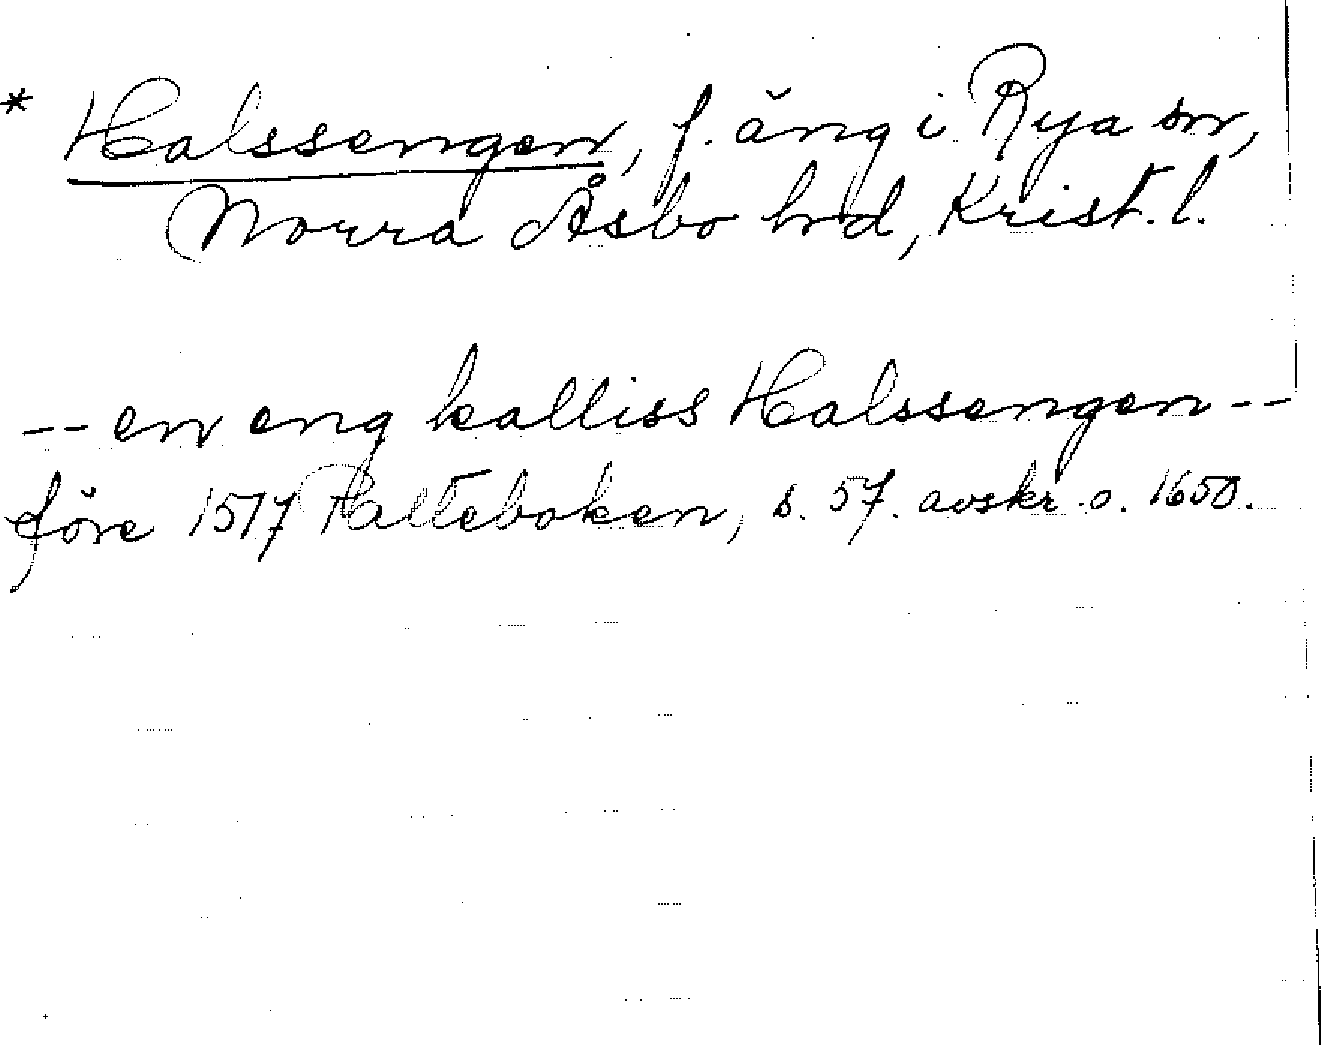 * Halssengen, f. äng i Rya sn,
Norra Åsbo hd, Krist. l.
-- en eng kalliss Halssengen --
före 1517 Palteboken, s. 57. avskr. o. 1650.